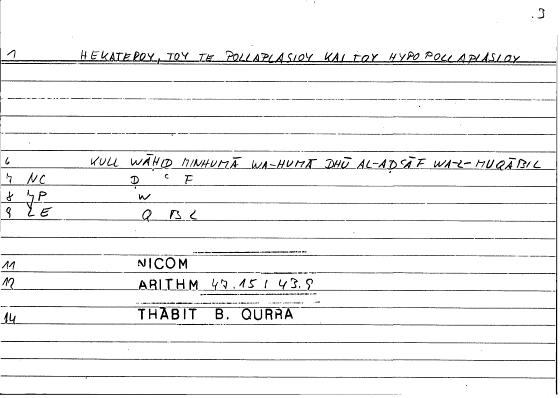 .3
1 HEKATEROY, TOY TE POLLAPLASIOY KAI TOY HYPOPOLLAPLASIOY
6 KULL WĀḤID MINHUMĀ WA-HUMĀ DHŪ AL-AḌʿĀF WA-L-MUQĀBIL
7 NC Ḍ ʿ F
8 W
9 Q B L
11 NICOM
12 ARITHM 47.15 / 43.9
14 THĀBIT B. QURRA